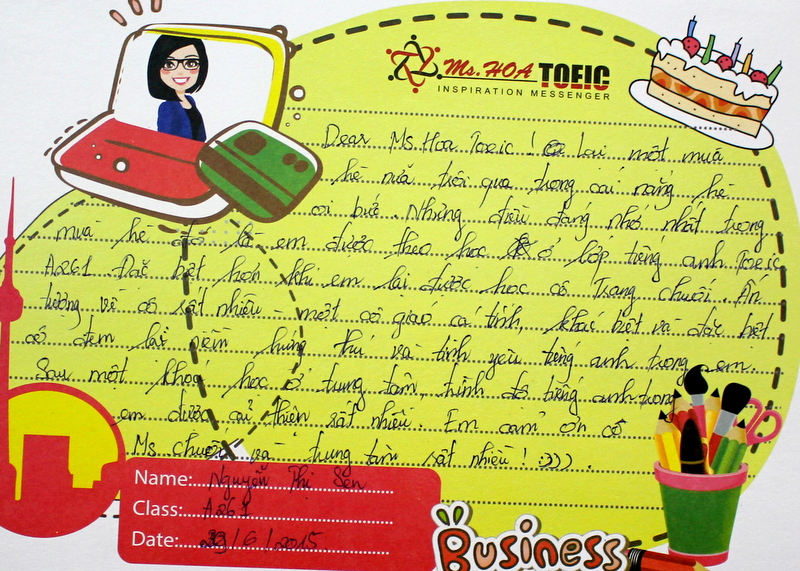 Ms. HOA TOEIC
INSPIRATION MESSENGER
Dear Ms Hoa Toeic ! Lại một mùa
hè nữa trôi qua trong cái nắng hè
oi bức. Những điều đáng nhớ nhất trong
mùa hè đó là em được theo học ở lớp tiếng anh Toeic
A261. Đặc biệt hơn khi em lại được học cô Trang chuối. Ấn
tượng về cô rất nhiều - một cô giáo cá tính, khác biệt và đặc biệt
cô đem lại niềm hứng thú và tình yêu tiếng anh trong em.
Sau một khoá học ở trung tâm, trình độ tiếng anh trong
em được cải thiện rất nhiều. Em cảm ơn cô
Ms chuối và trung tâm rất nhiều ! :))) .
Name: Nguyễn Thị Sen
Class: A261
Date: /6/2015
Business